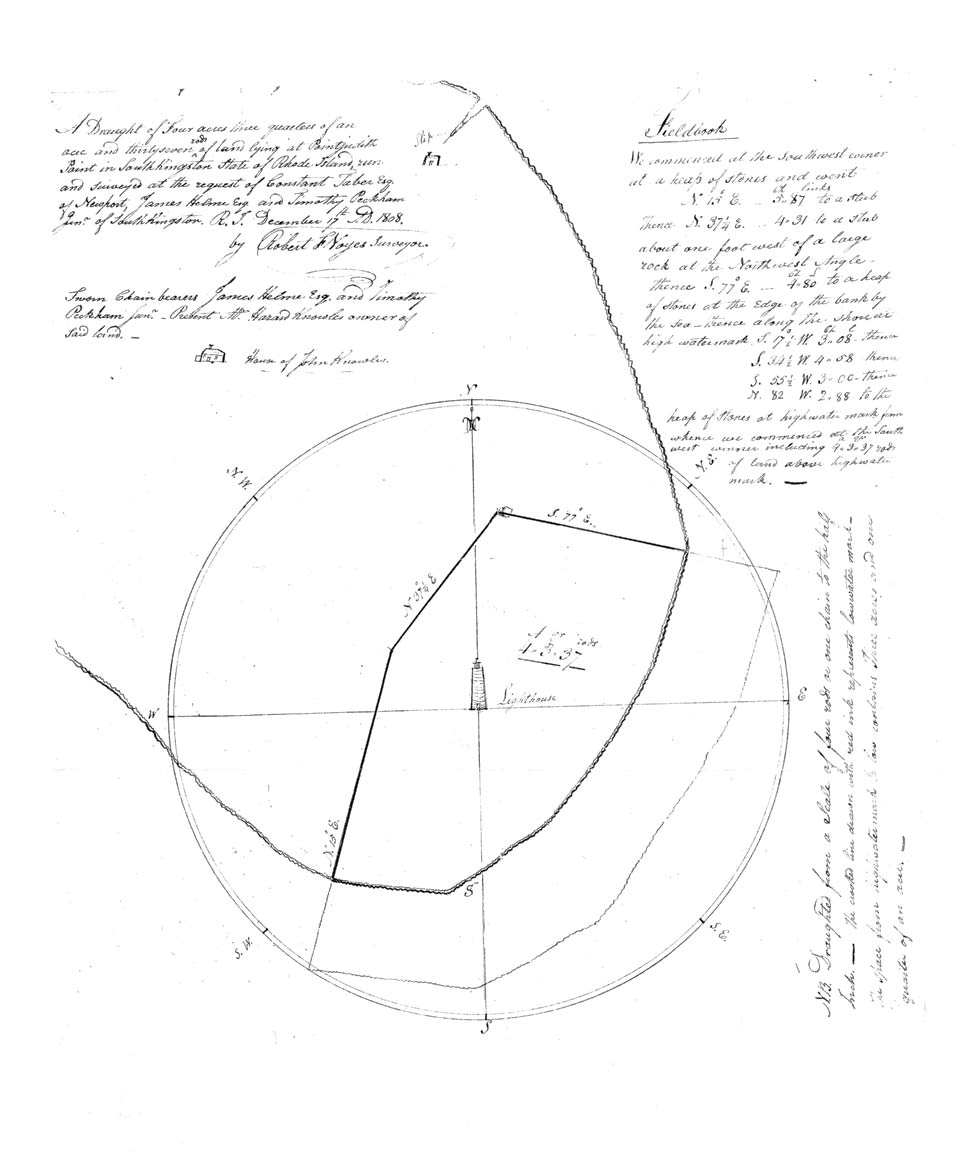 A Draught of Four acres three quarters of an
acre and thirtyseven rods of land lying at Pointjudith
Point in Southkingston State of Rhode Island, run
and surveyed at the request of Constant Taber Esq.
of Newport, James Helme Esq. and Timothy Peckham
Junr. of Southkingston. R. I. December 17th A.D. 1808.
by Robert F. Noyes Surveyor.
Sworn Chain bearers James Helme Esq. and Timothy
Peckham Junr. - Present Mr. Hazard Knowles owner of
said land. -
House of John Knowles.
Fieldbook
We commenced at the Southwest corner
at a heap of stones and went
N. 15° E. .. Ch links 5.87 to a stub
thence N. 37¼ E. .. 4-31 to a stub
about one foot west of a large
rock at the Northwest Angle -
thence S. 77° E. .. 4-80 to a heap
of stones at the Edge of the bank by
the sea - thence along the shore or
high water mark S. 17½ W. 3-08- thence
S. 34½ W. 4-58 thence
S. 55½ W. 3-00- thence
N. 82 W. 2-88 to the
heap of stones at highwater mark from
whence we commenced at the South
west corner including 4-3-37 rods
of land above highwater
mark. —
N
N
N.W.
N.E.
S. 77° E.
N 37¼ E
A qr rods
4-3-37
Lighthouse
W
E
N. 15° E.
S
S.W.
S.E.
S
N.B. Draughted from a Scale of four rods or one chain to the half
Inch. — The crooked line drawn with red ink represents lowwater mark —
the space from highwatermark to low contains three acres and one
quarter of an acre. —